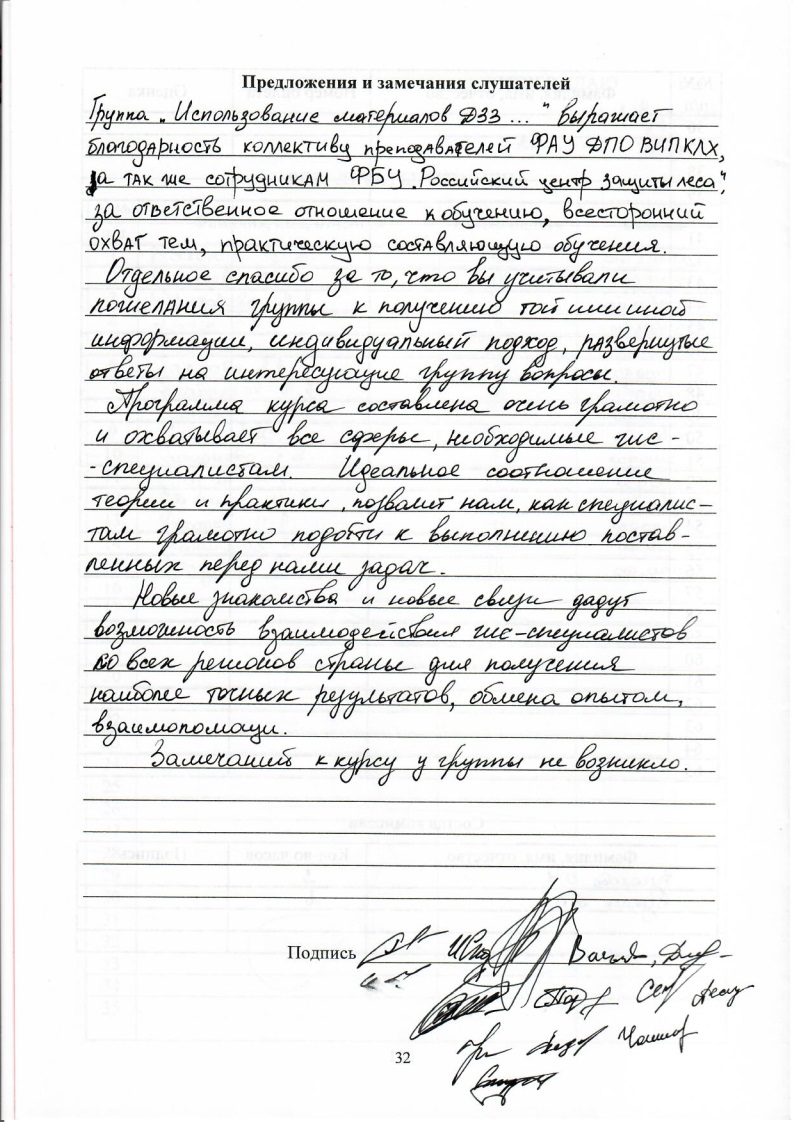 Предложения и замечания слушателей
Группа „Использование материалов ДЗЗ ... " выражает
благодарность коллективу преподавателей ФАУ ДПО ВИПКЛХ,
а так же сотрудникам ФБУ „Российский центр защиты леса",
за ответственное отношение к обучению, всесторонний
охват тем, практическую составляющую обучения.
Отдельное спасибо за то, что вы учитывали
пожелания группы к получению той или иной
информации, индивидуальный подход, развернутые
ответы на интересующие группу вопросы.
Программа курса составлена очень грамотно
и охватывает все сферы, необходимые гис-
-специалистам. Идеальное соотношение
теории и практики, позволит нам, как специалис-
там грамотно подойти к выполнению постав-
ленных перед нами задач.
Новые знакомства и новые связи дадут
возможность взаимодействия гис-специалистов
во всех регионов страны для получения
наиболее точных результатов, обмена опытом,
взаимопомощи.
Замечаний к курсу у группы не возникло.
Подпись
32